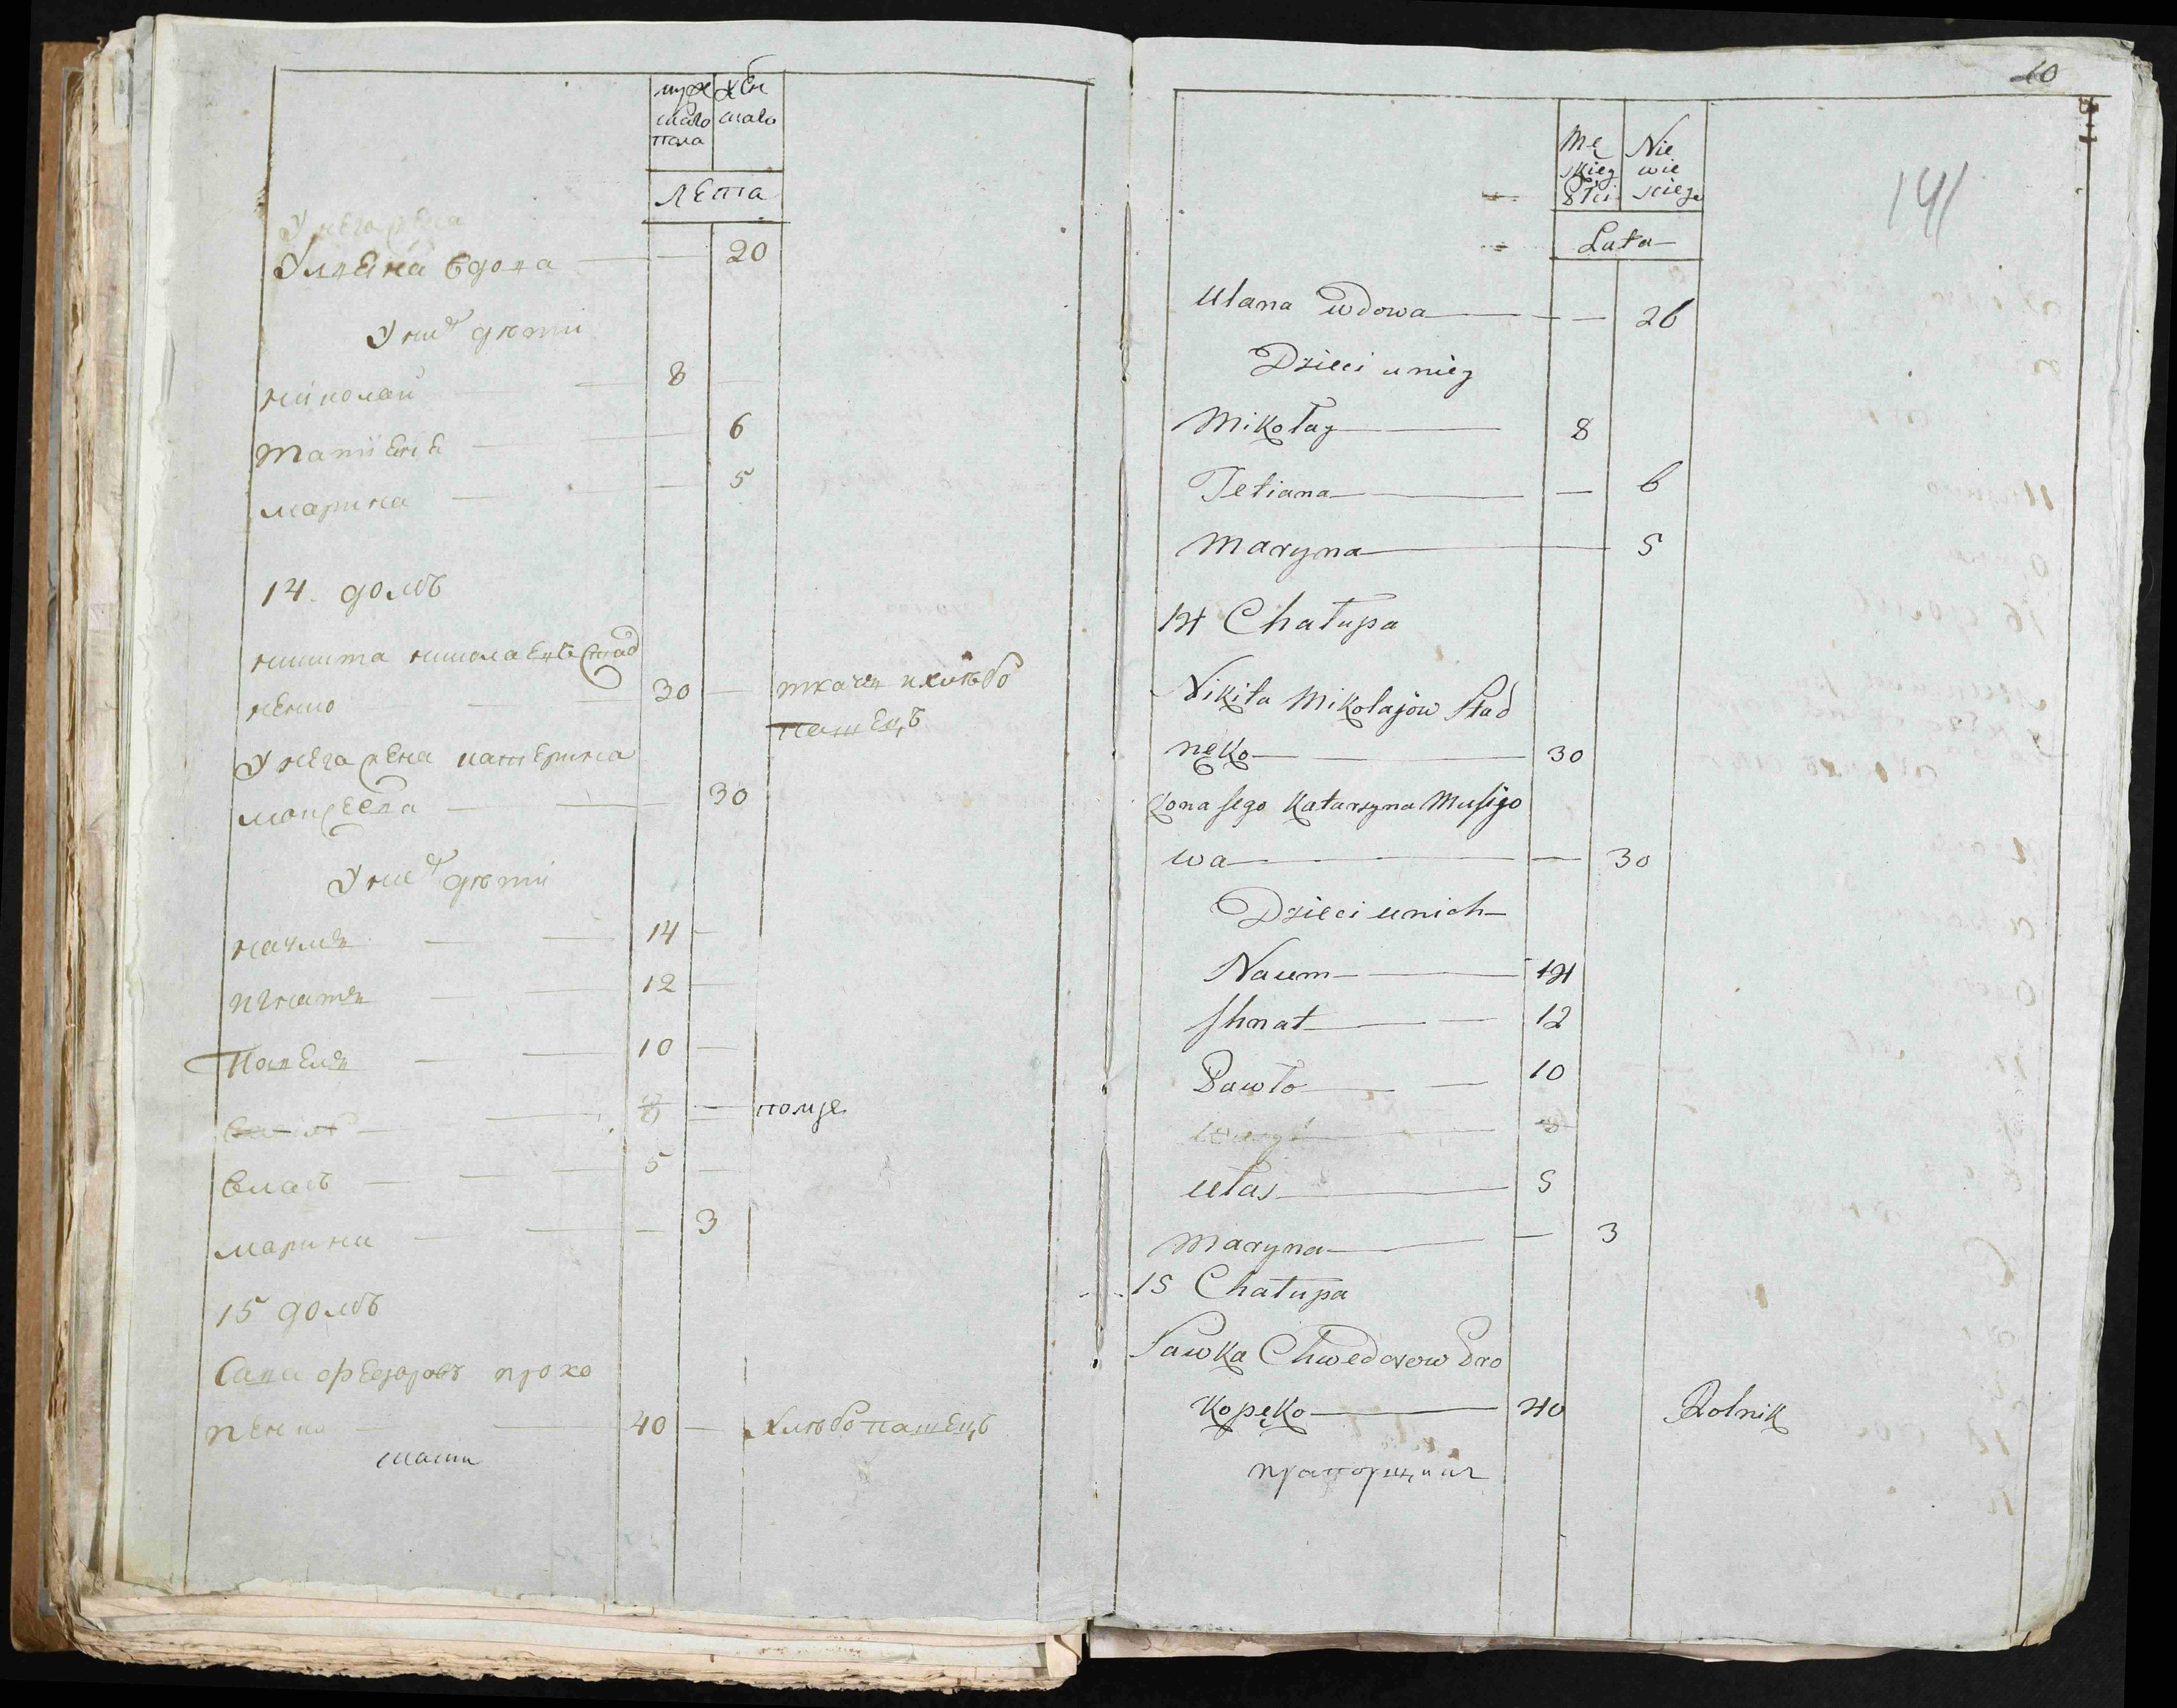 муж
скаго
пола
жен
скаго
лета
У него жена
Улияна вдова 20
У них дети
николай 8
татиана 6
марина 5
14. домъ
никита николаевъ стад
ненко 30 ткачъ и хлебо
пашецъ
У него жена катерина
моисеева 30
У них дети
наумъ 14
игнатъ 12
Павелъ 10
8
власъ 5
марина 3
15 домъ
Сава федоровъ проко
пенко 40 хлебопашецъ
10
141
Mę
skieg
płci
Nie
wie
sciego
Lata
Ulana wdowa 26
Dzieci unieg
Mikołay 8
Tetiana 6
Maryna 5
14 Chałupa
Nikita Mikołajow Stad
nęko 30
Zona jego Katarzyna Musijo
wa 30
Dzieci unich
Naum 14
Ihnat 12
Pawło 10
8
Ułas 5
Maryna 3
15 Chałupa
Sawka Chwedorow Pro
kopęko 40 Rolnik
прапорщикъ